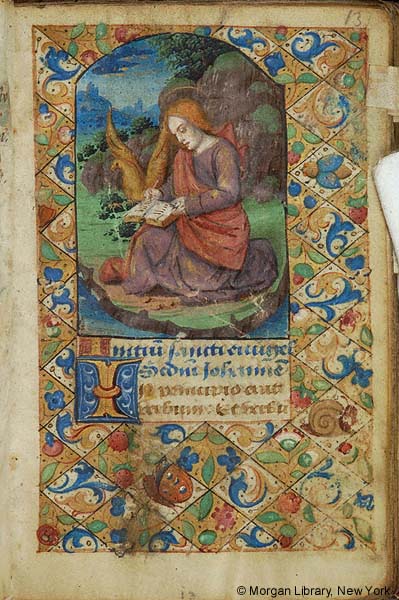 13
Initiū sancti euāgel
Scdm Johannē
In principio erat
verbum: Et verbū
© Morgan Library, New York